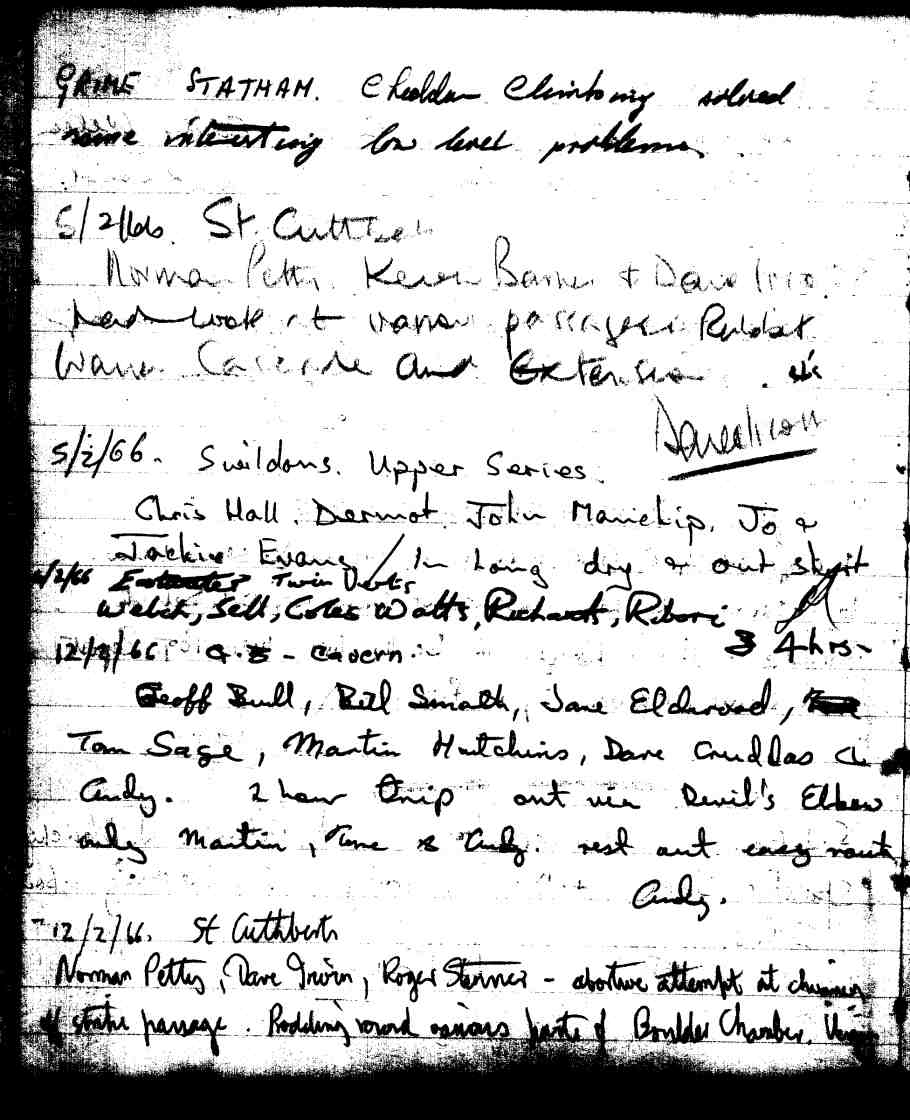 GRIME STATHAM. Cheddar Climbing solved
some interesting low level problems.
5/2/66. St. Cuthbe
Norman Petty Barnes + Dave Irwin.
had look at passages Rabbit
Warren Cascade and Extension.
Dave Irwin
5/2/66. Swildons. Upper Series.
Chris Hall. Dermot John Manchip. Jo &
Jackie Evans / In Long dry & out
/2/66 Twin
Welch, Sell, Coles Watts, Richards,
12/2/66 G.B - Cavern.
4hrs-
Geoff Bull, Bill Smith, Jane
Tom Sage, Martin Hutchins, Dave Cruddas &
Andy. 2 hour trip out via Devil's Elbow
only Martin, & Andy. rest out easy route
Andy.
12/2/66. St Cuthberts
Norman Petty, Dave Irwin, Roger Stenner - abortive attempt at
of passage. Prodding round various parts of Boulder Chamber.